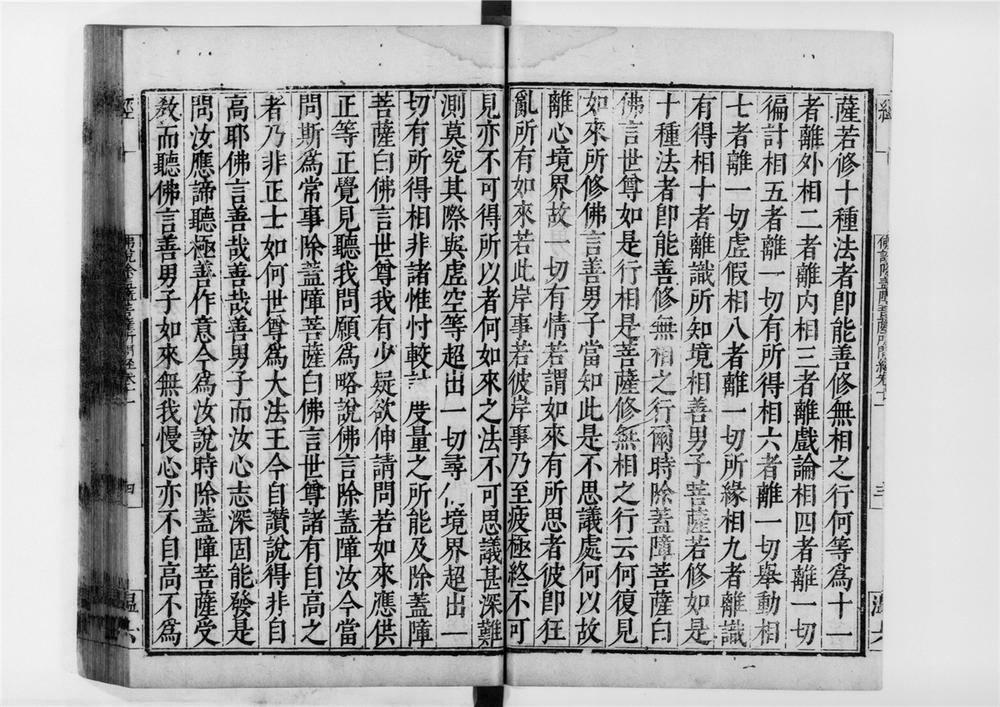 薩若修十種法者即能善修無相之行何等為十一
者離外相二者離內相三者離戲論相四者離一切
徧計相五者離一切有所得相六者離一切舉動相
七者離一切虛假相八者離一切所緣相九者離識
有得相十者離識所知境相善男子菩薩若修如是
十種法者即能善修無相之行爾時除蓋障菩薩白
佛言世尊如是行相是菩薩修無相之行云何復見
如來所修佛言善男子當知此是不思議處何以故
離心境界故一切有情若謂如來有所思者彼即狂
亂所有如來若此岸事若彼岸事乃至疲極終不可
見亦不可得所以者何如來之法不可思議甚深難
測莫究其際與虛空等超出一切尋伺境界超出一
切有所得相非諸惟忖較計度量之所能及除蓋障
菩薩白佛言世尊我有少疑欲伸請問若如來應供
正等正覺見聽我問願為略說佛言除蓋障汝今當
問斯為常事除蓋障菩薩白佛言世尊諸有自高之
者乃非正士如何世尊為大法王今自讚說得非自
高耶佛言善哉善哉善男子而汝心志深固能發是
問汝應諦聽極善作意今為汝說時除蓋障菩薩受
教而聽佛言善男子如來無我慢心亦不自高不為